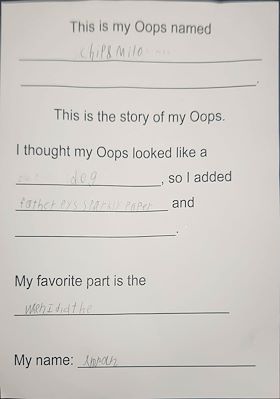 This is my Oops named
chip & Milo
This is the story of my Oops.
I thought my Oops looked like a
dog, so I added
eys sparkly paper and
.
My favorite part is the
wen I did the
My name: